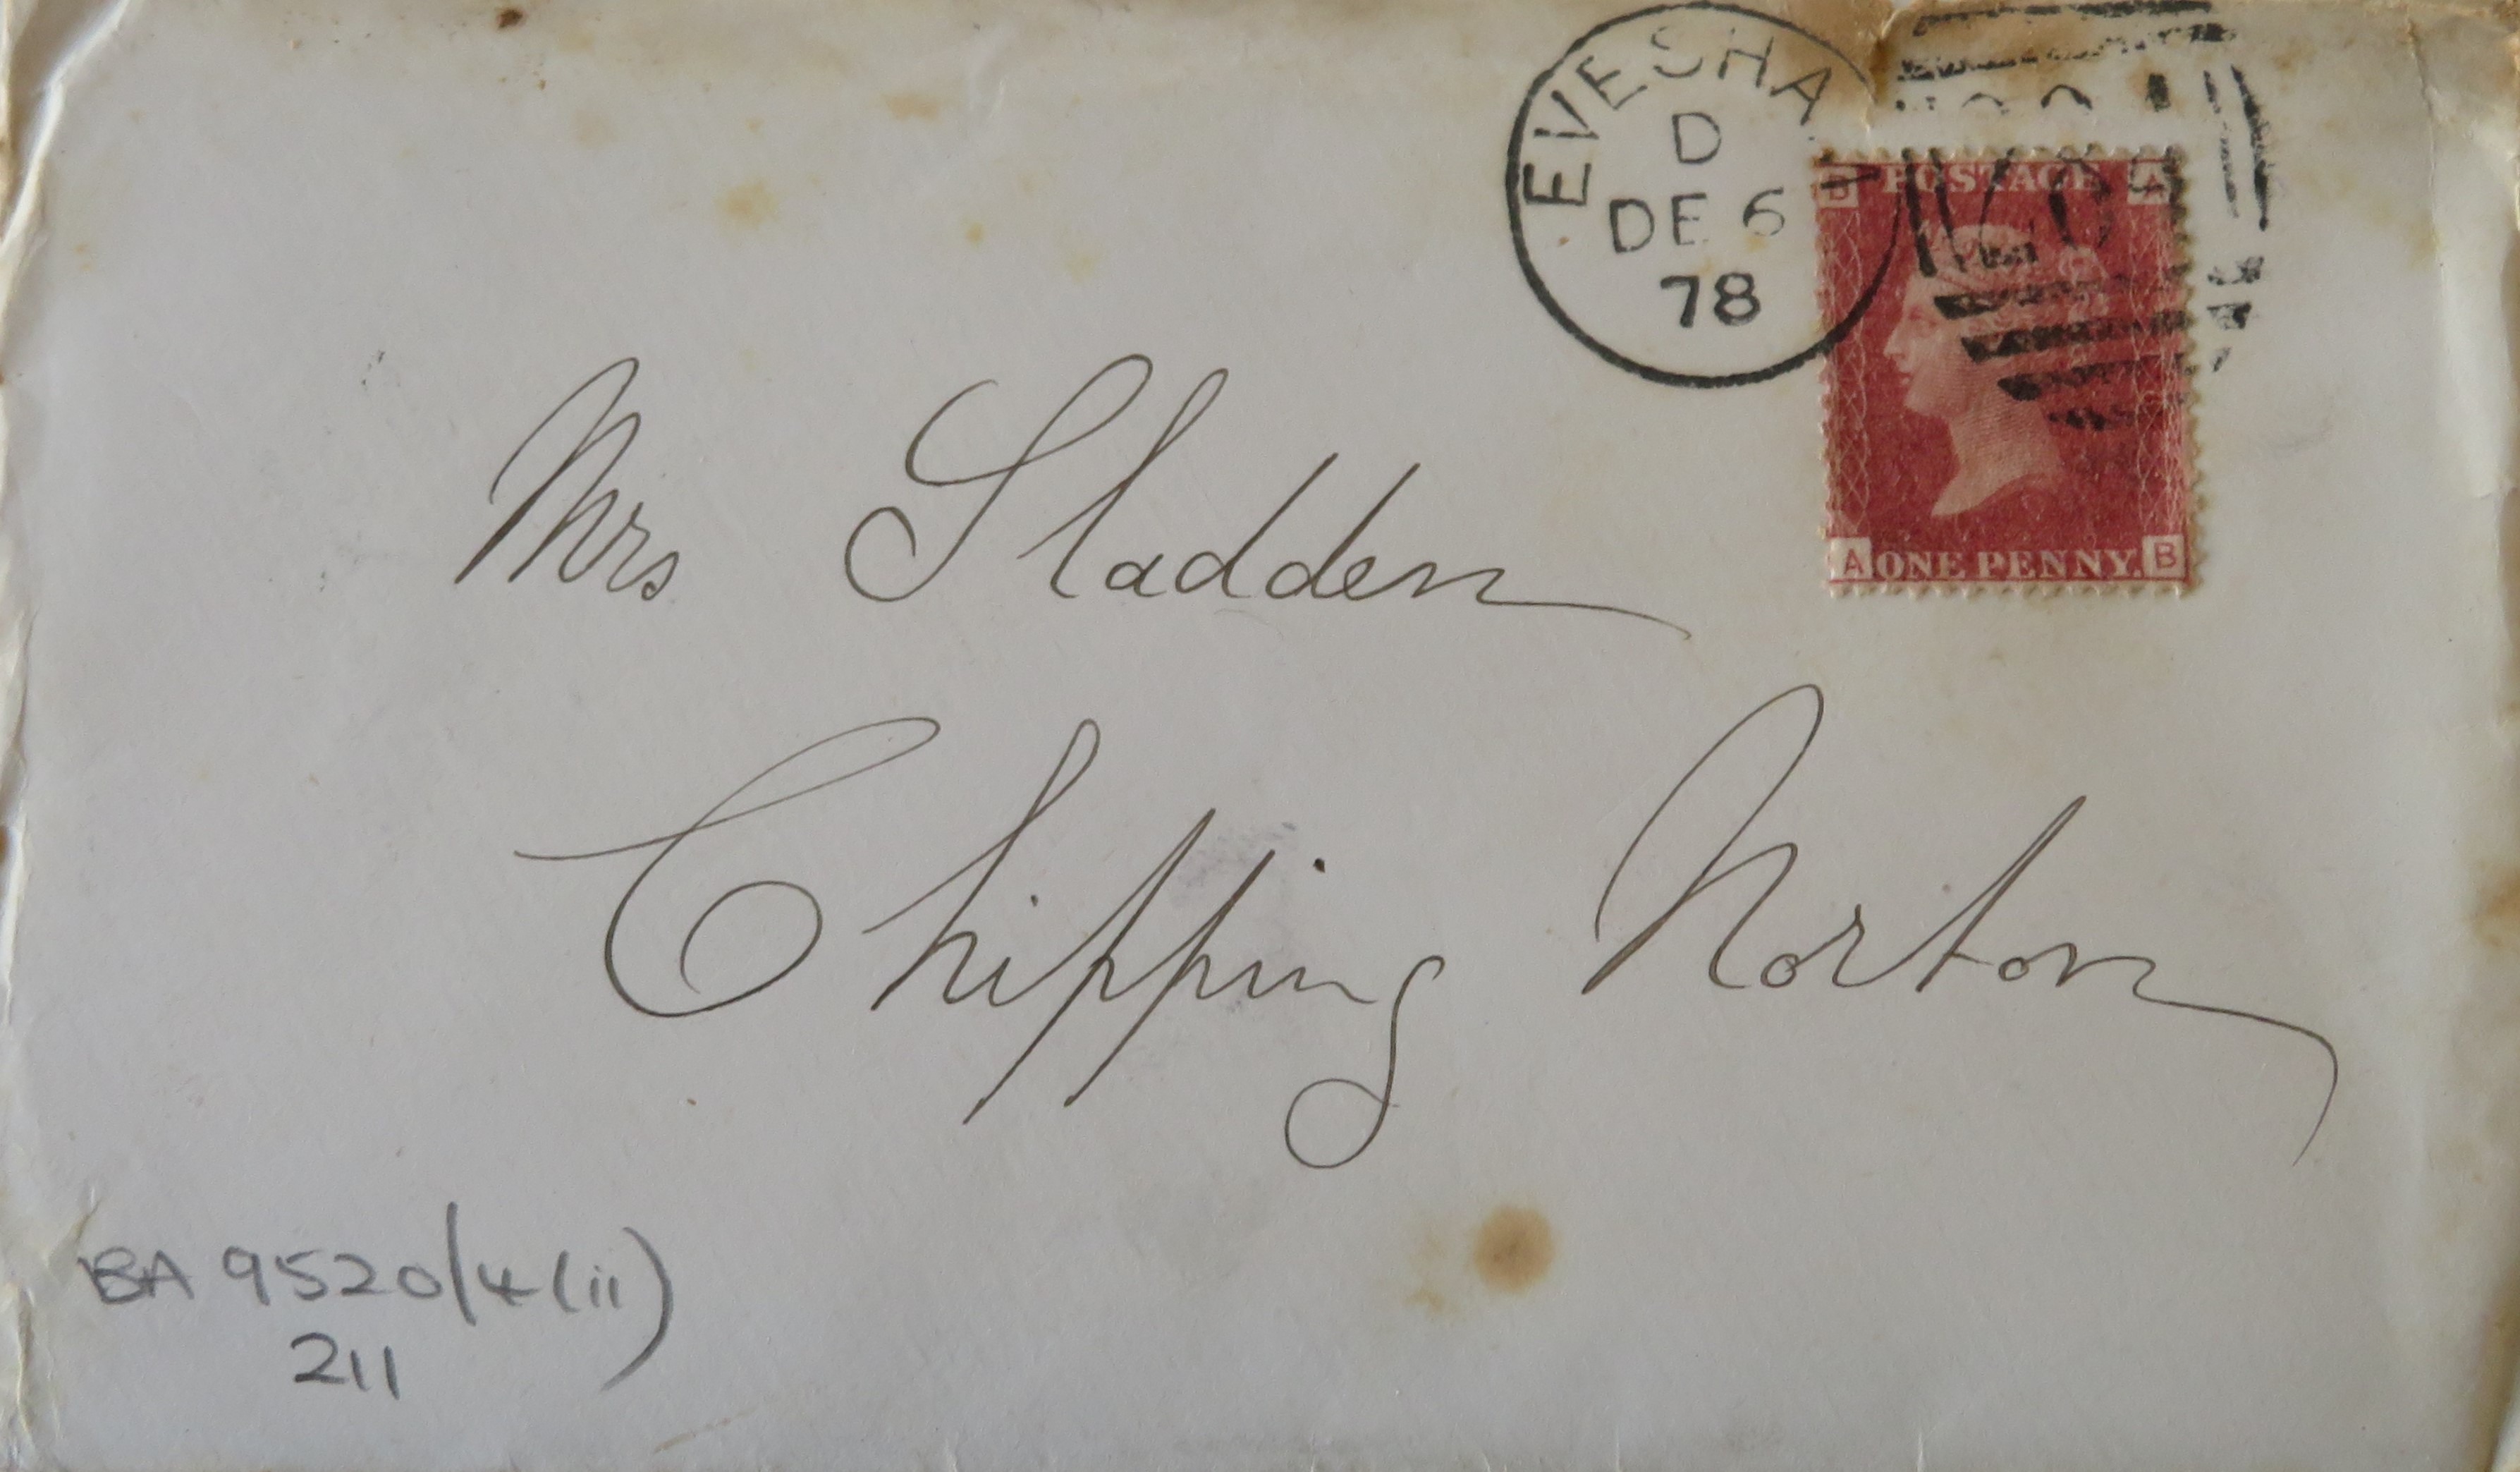 EVESHA
D
DE 6
78
B POSTAGE A
A ONE PENNY. B
Mrs Sladden
Chipping Norton
BA 9520/4(ii)
211